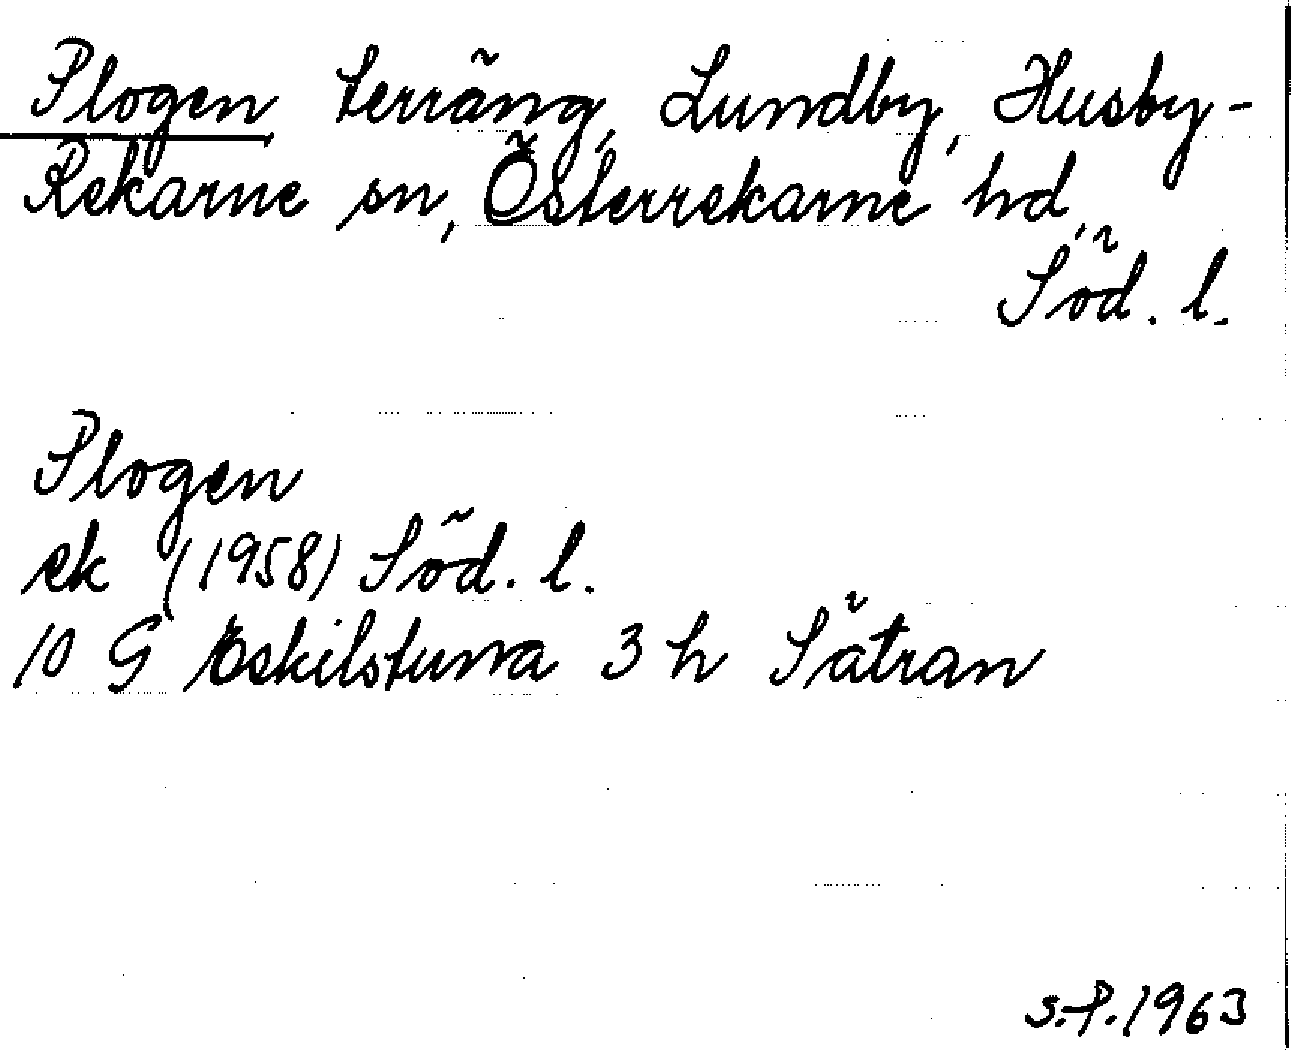 Plogen terräng, Lundby, Husby-
Rekarne sn, Österrekarne hd,
Söd. l.
Plogen
ek (1958) Söd. l.
10 G Eskilstuna 3 h Sätran
S.P. 1963